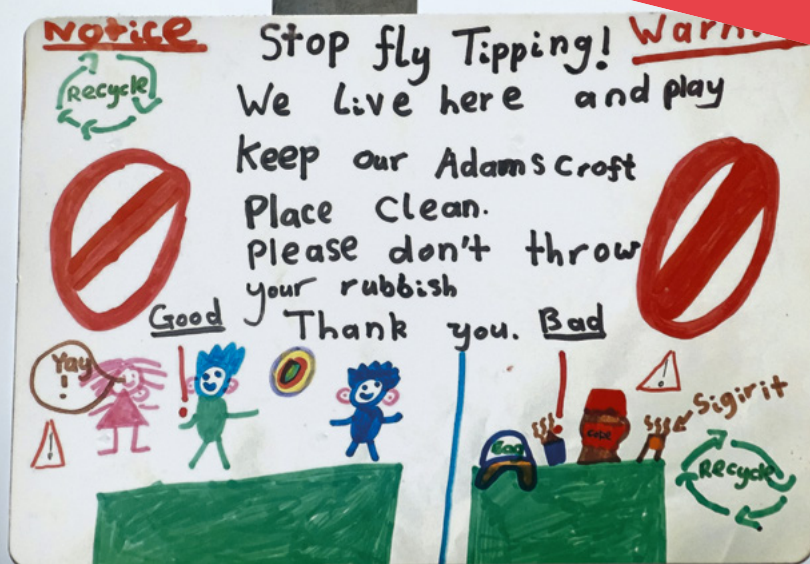 Notice
Stop fly Tipping!
Recycle
We Live here and play
Keep our Adamscroft
Place Clean.
Please don't throw
your rubbish
Thank you.
Good
Bad
Yay!
Coke
Sigirit
Recycle